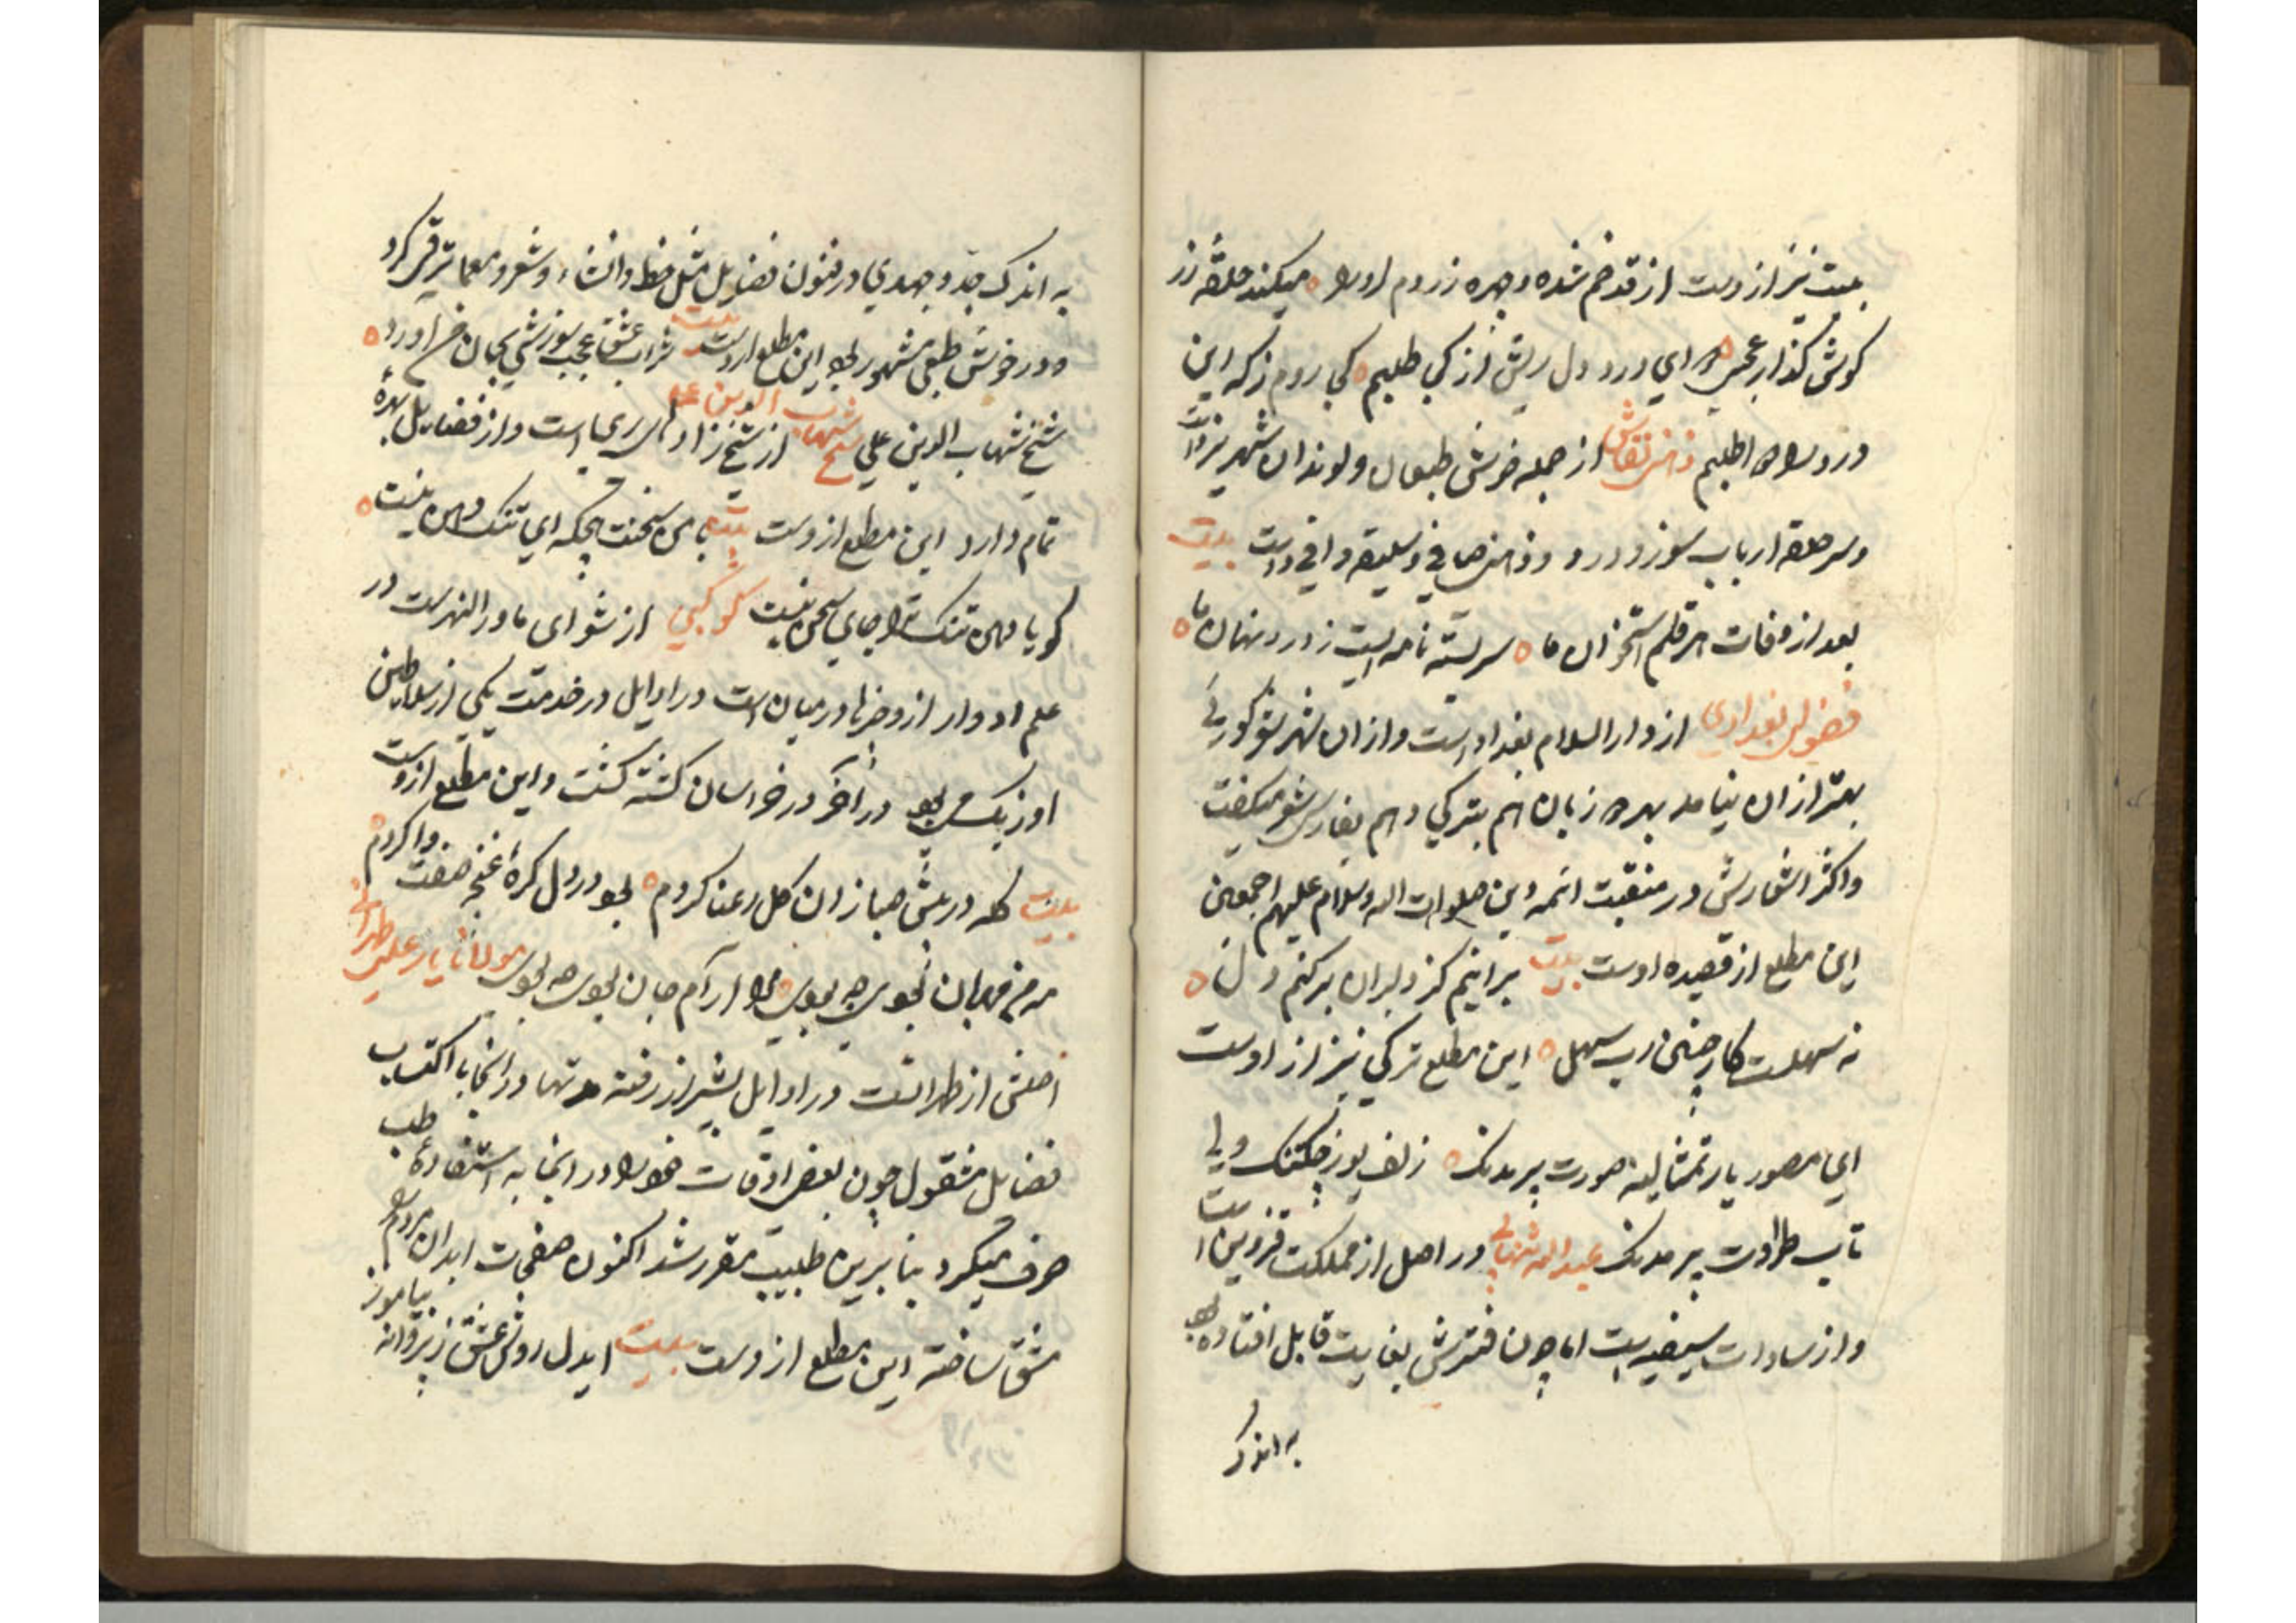 بیت نیز ازوست از قد خم شده و چهره زردم او را میکند حلقه زر
کوش کذار عجمی ای درد دل ریش از کی طلبیم کی روم زکه این
درد را دوا طلبیم ذهنی نقاش از جمله خوش طبعان و لوندان شهر تبریز است
و سر حلقه ارباب سوز و درد و ذهن صافی و سلیقه وافی داشت بیت
بعد از وفات هر قلم استخوان ما سر بسته نامه ایست ز درد نهان ما
فضولی بغدادی از دار السلام بغداد است و ازان شهر شاعری
بهتر ازان نیامده بهر دو زبان هم بترکی و هم بفارسی شعر میکفت
و اکثر اشعارش در منقبت ائمه دین صلوات الله و سلام علیهم اجمعین
این مطلع از قصیده اوست بیت برانیم کز دلبران برکنم دل
نه سهلست کار چنین رب سهل این مطلع ترکی نیز از اوست
ای مصور یار تمثالینه صورت ویرمدنک زلف یوز چکتنک ولی
تاب طراوت ویرمدنک عبدالله شهابی در اصل از مملکت قزوین است
و از سادات سیفی است اما چون فقیرش بغایت قابل افتاده بود
به اندک
به اندک جد و جهدی در فنون فضایل مثل خط و انشاء و شعر و معما ترقی کرد
و در خوش طبعی مشهور بود این مطلع از وست بیت شراب عشق عجب سوزشی بجان آورد
شیخ شهاب الدین علی شیخ شهاب الدین علی از شیخ زاد های ری است و از فضایل بهره
تمام دارد این مطلع ازوست بیت با من سخنت چونکه ای تنک دهن نیست
کویا دهن تنک ترا جای سخن نیست کوکبی از شعرای ماورالنهرست در
علم ادوار ازو چیزها در میان است در اوایل در خدمت یکی از سلاطین
اوزبک می بود در آخر در خراسان کشته کشت و این مطلع ازوست
بیت کله در پیش صبا زان کل رعنا کردم بود در دل کره غنچه صفت وا کردم
مه من مهربان بودی چه بودی مرا آرام جان بودی چه بودی مولانا یار علی طهرانی
اصلش از طهرانست در اوایل بشیراز رفته مدتها در انجا با اکتساب
فضایل مشغول چون بعضی اوقات خود را در انجا به استفاده طب
صرف میکرد بنا برین طبیب مقرر شد اکنون صفحات ابدان مردم را
مشق ساخته این مطلع ازوست بیت ایدل روش عشق ز پروانه بیاموز